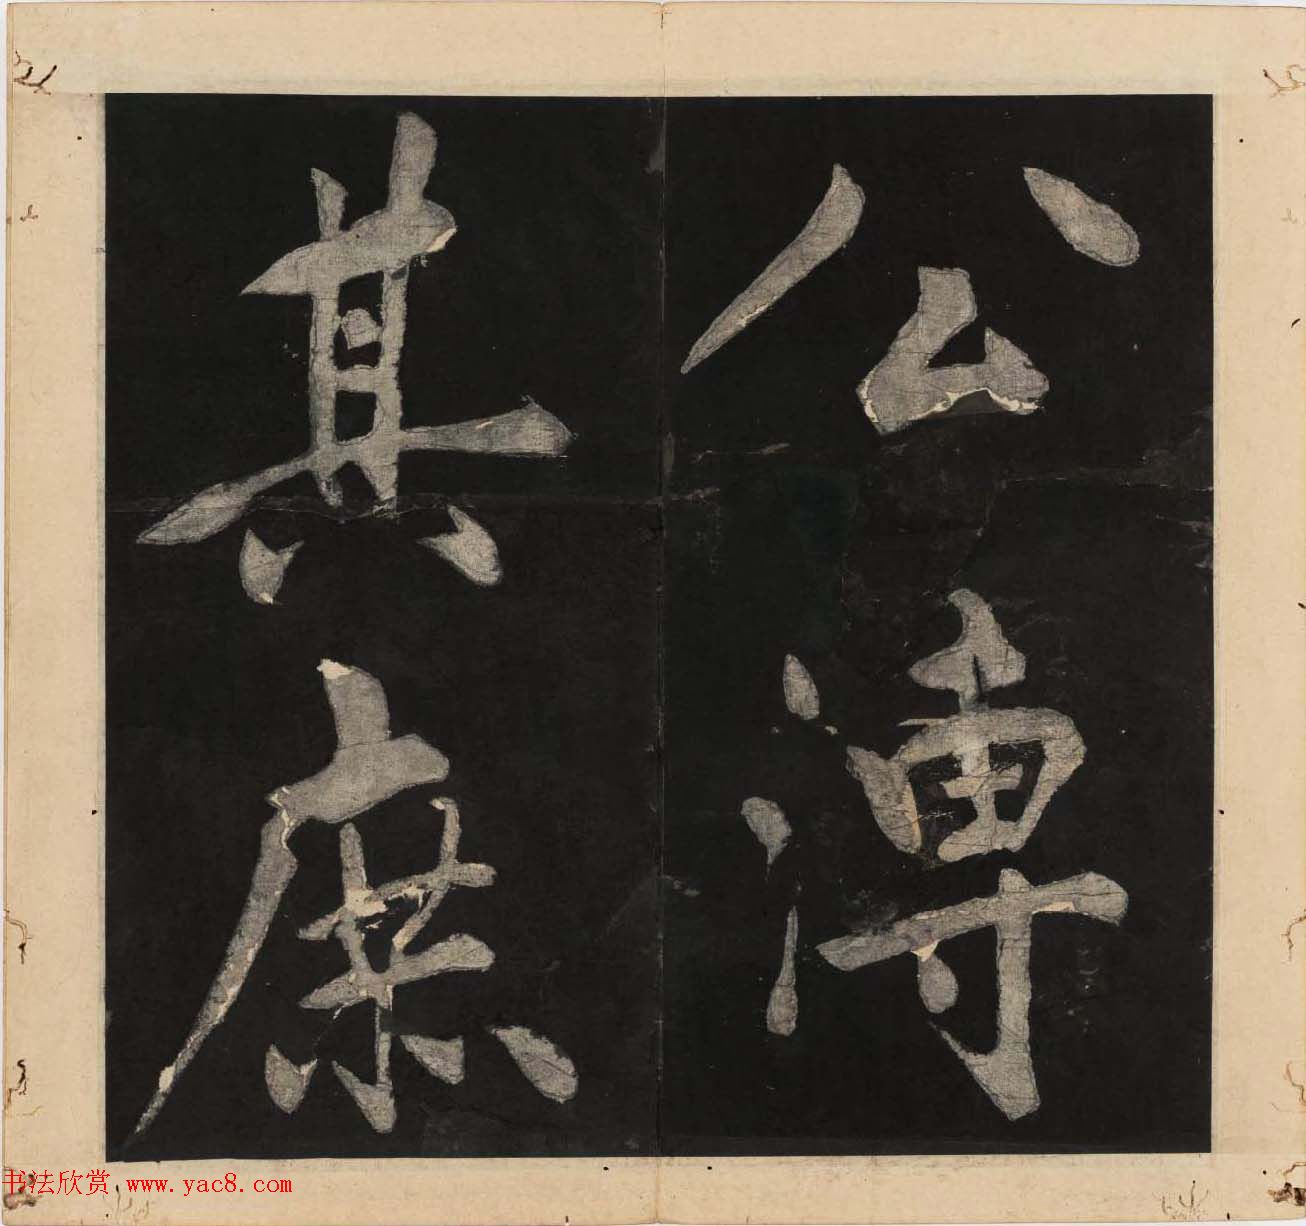 公溥
其庶
书法欣赏 www.yac8.com